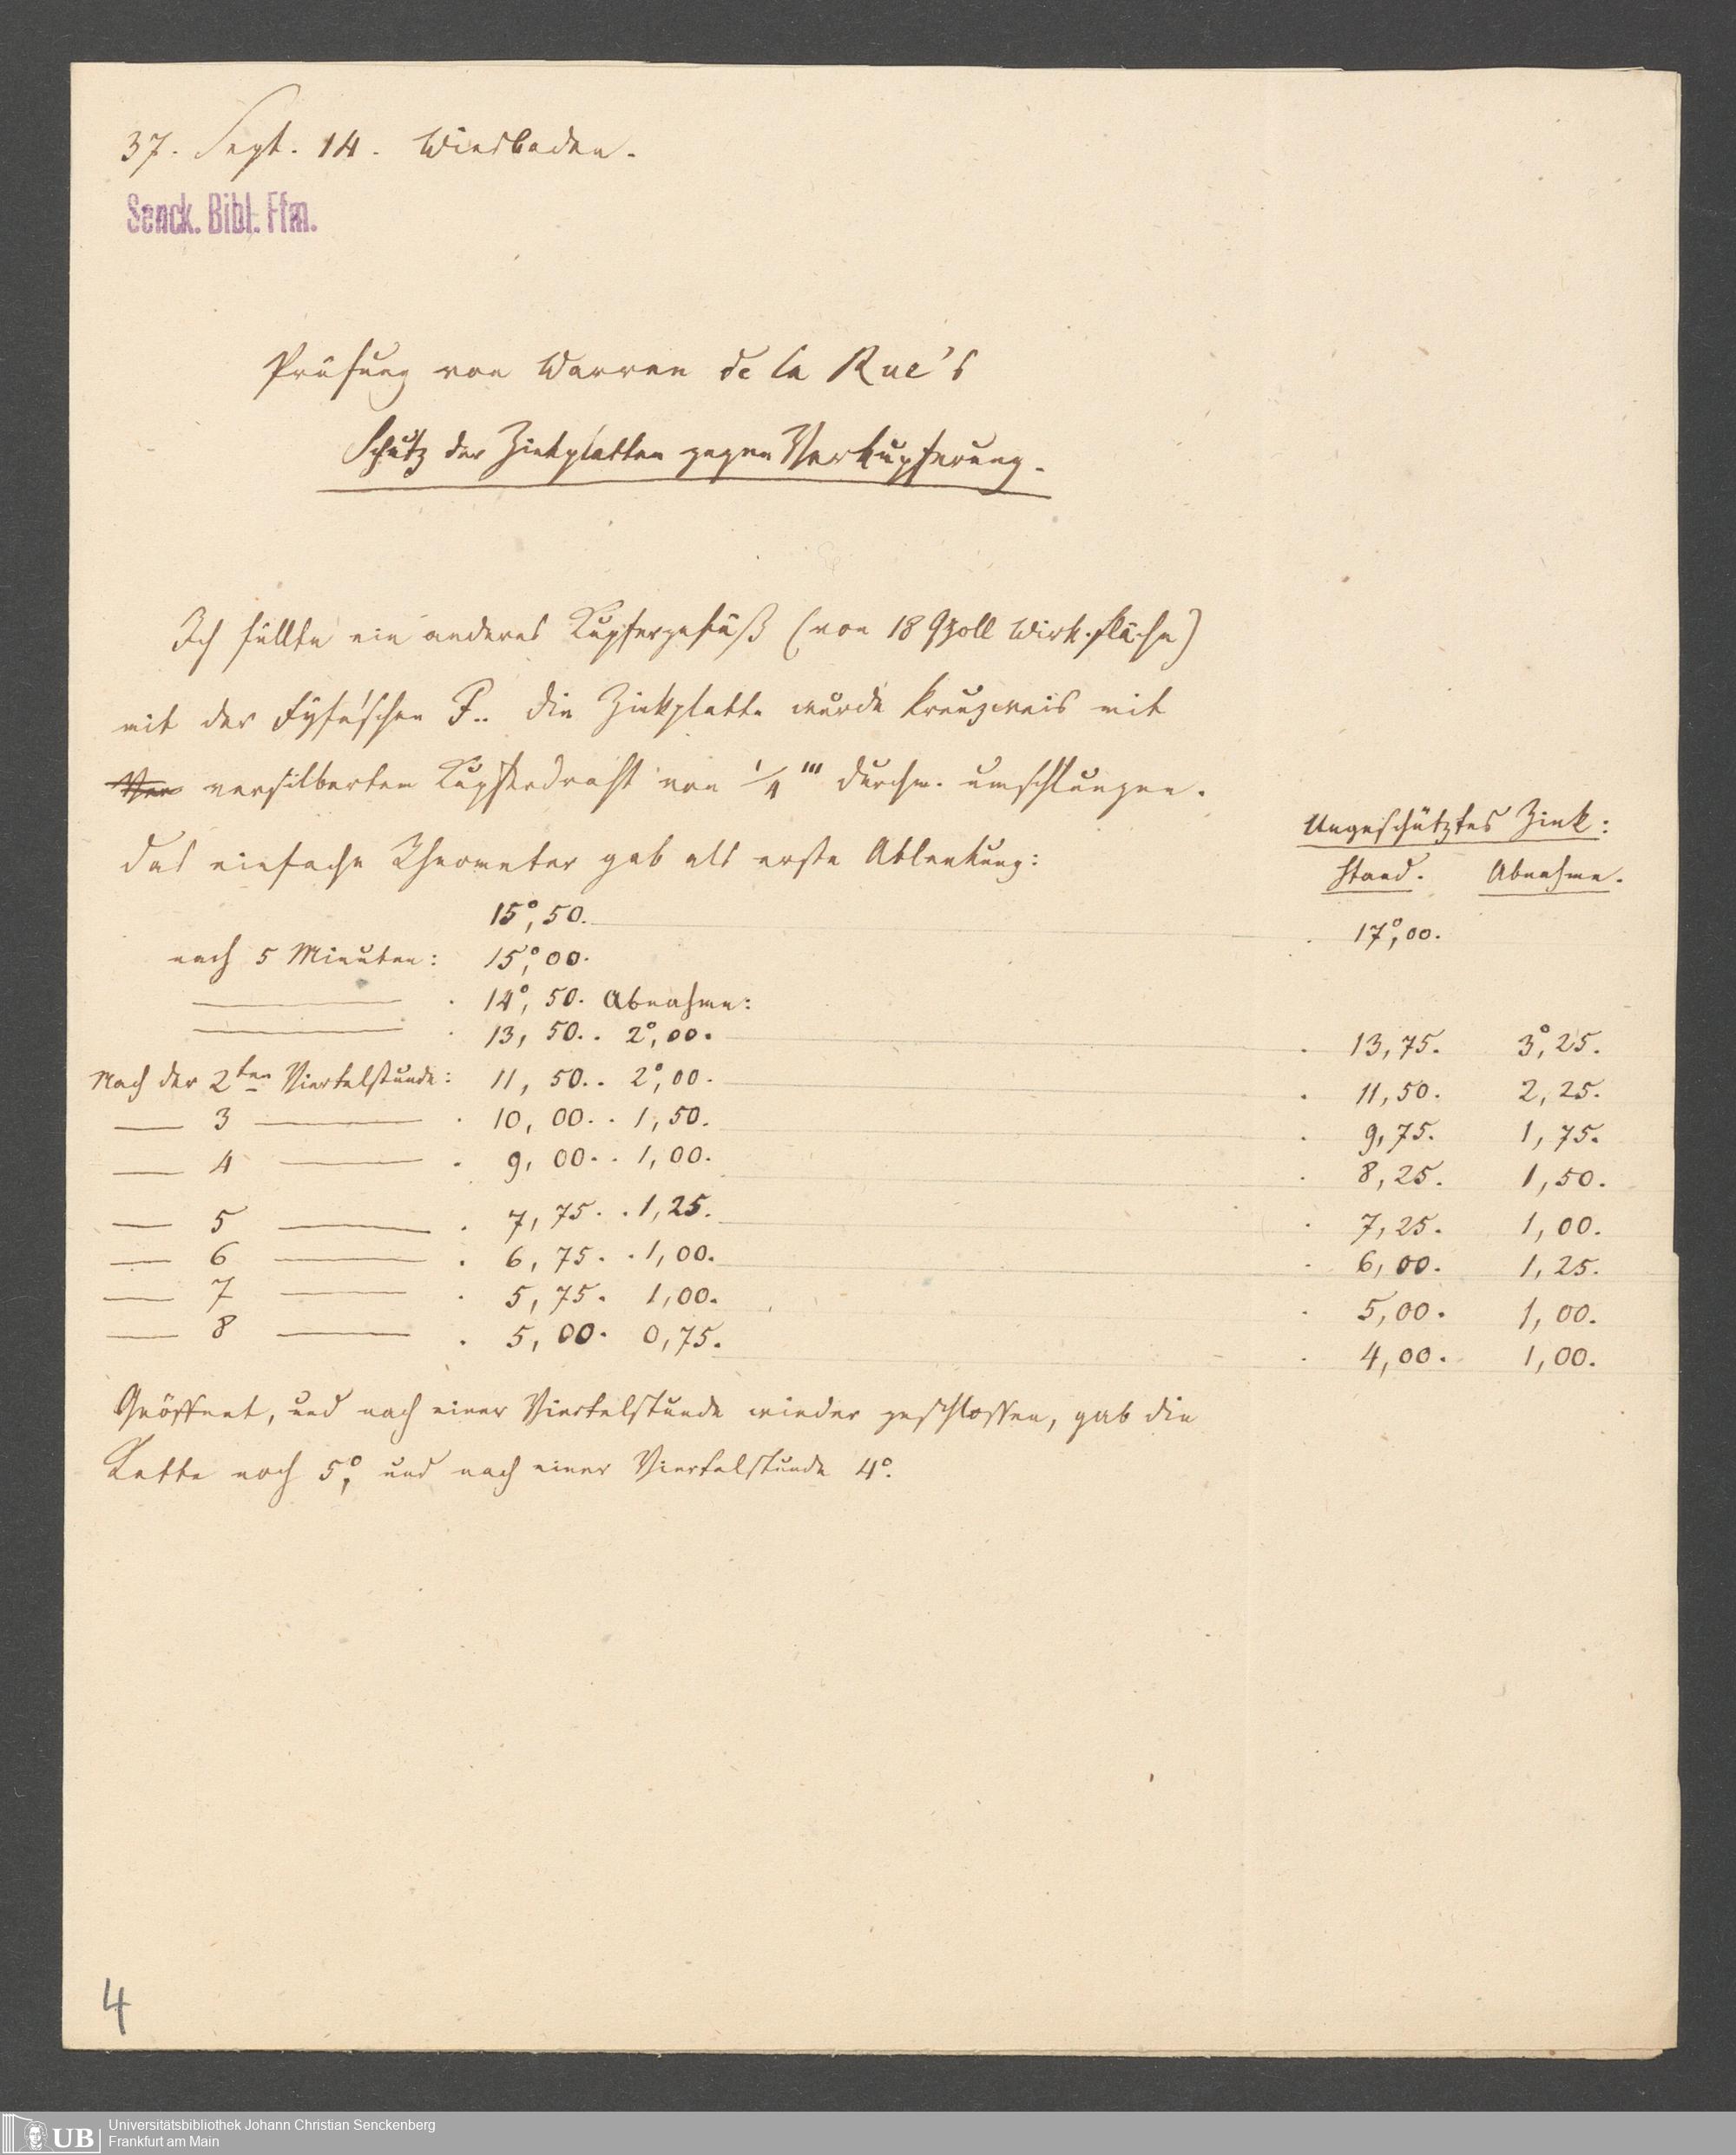 37. Sept. 14. Wiesbaden.
Senck. Bibl. Ffm.
Prüfung von Warren de la Rue's
Schutz der Zinkplatten gegen Verkupferung.
Ich füllte ein anderes Kupfergefäß (von 18 Qzoll Wirk. fläche)
mit der Fyfe'schen F.. Die Zinkplatte wurde kreuzweis mit
Ver versilbertem Kupferdraht von 1/4''' Durchm. umschlungen.
Das einfache Rheometer gab als erste Ablenkung:
Ungeschütztes Zink:
Stand. Abnahme.
15°,50. 17°,00.
nach 5 Minuten: 15°,00.
14°,50. Abnahme:
13,50.. 2°,00. 13,75. 3°,25.
Nach der 2ten Viertelstunde: 11,50.. 2°,00. 11,50. 2,25.
— 3 — 10,00.. 1,50. 9,75. 1,75.
— 4 — 9,00.. 1,00. 8,25. 1,50.
— 5 — 7,75.. 1,25. 7,25. 1,00.
— 6 — 6,75.. 1,00. 6,00. 1,25.
— 7 — 5,75. 1,00. 5,00. 1,00.
— 8 — 5,00. 0,75. 4,00. 1,00.
Geöffnet, und nach einer Viertelstunde wieder geschlossen, gab die
Kette noch 5°, und nach einer Viertelstunde 4°.
4
UB
Universitätsbibliothek Johann Christian Senckenberg
Frankfurt am Main